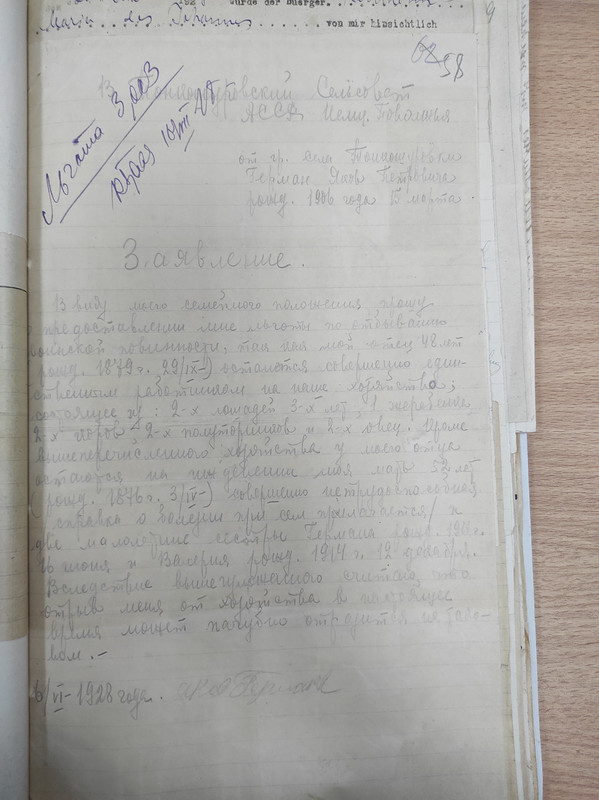 wurde der Buerger.
von mir hinsichtlich
58
Льгота 3 раз
В Тонкошуровский Сельсовет
АССР Немц. Поволжья
от гр. села Тонкошуровка
Герман Яков Петровича
рожд. 1906 года 15 марта
Заявление.
В виду моего семейного положения прошу
предоставлении мне льготы по отбыванию
воинской повинности, так как мой отец 48 лет
рожд. 1879 г. 29/IX-) остается совершенно един-
ственным работником на наше хозяйства,
состоящее из: 2-х лошадей 3-х лет, 1 жеребенка
2-х коров 2-х полуторников и 8-х овец. Кроме
вышеперечисленного хозяйства у моего отца
остаются на иждевении моя мать 52 лет
(рожд. 1876 г. 3/IV-) совершенно нетрудоспособная
справка о болезни при сем прилагается/ и
две малолетние сестры Германа рожд.
16 июня и Валерия рожд. 1914 г. 12 декабря.
Вследствие вышеизложенного считаю, что
отрыв меня от хозяйства в настоящее
время может пагубно отразится на
вом.-
VI- 1928 года. Яков Германн